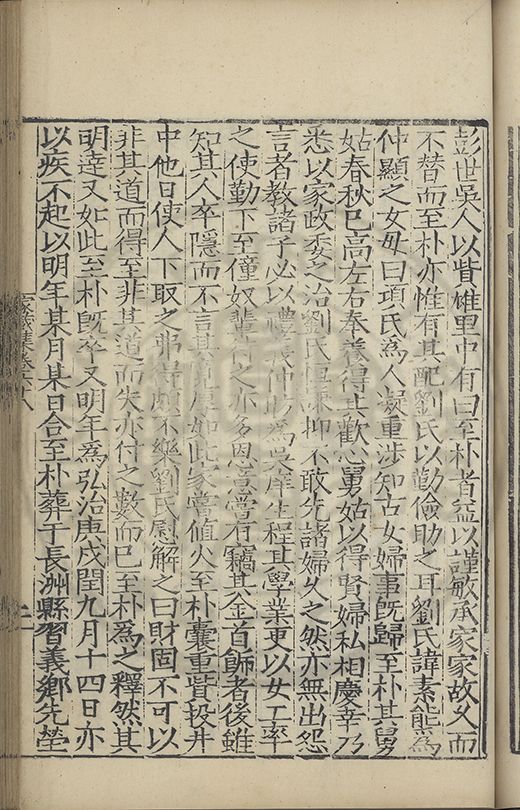 彭世吳人以貲雄里中有曰至朴者益以謹敏承家家故乂而
不替而至朴亦惟有其配劉氏以勤儉助之耳劉氏諱素能為
仲顯之女毋曰項氏為人凝重涉知古女婦事既歸至朴其舅
姑春秋已高左右奉養得其歡心舅姑以得賢婦私相慶幸乃
悉以家政委之治劉氏恒謙抑不敢先諸婦久之然亦無出怨
言者教諸子必以禮義仲昉為吳庠生程其學業更以女工率
之使勤下至僮奴輩待之亦多恩意嘗有竊其金首飾者後雖
知其人卒隱而不言其忠厚如此家嘗值火至朴囊重貲投井
中他日使人下取之弗得頗不樂劉氏慰解之曰財固不可以
非其道而得至非其道而失亦付之數而已至朴為之釋然其
明達又如此至朴既卒又明年為弘治庚戌閏九月十四日亦
以疾不起以明年某月某日合至朴葬于長洲縣習義鄉先塋
家藏集卷六八
二